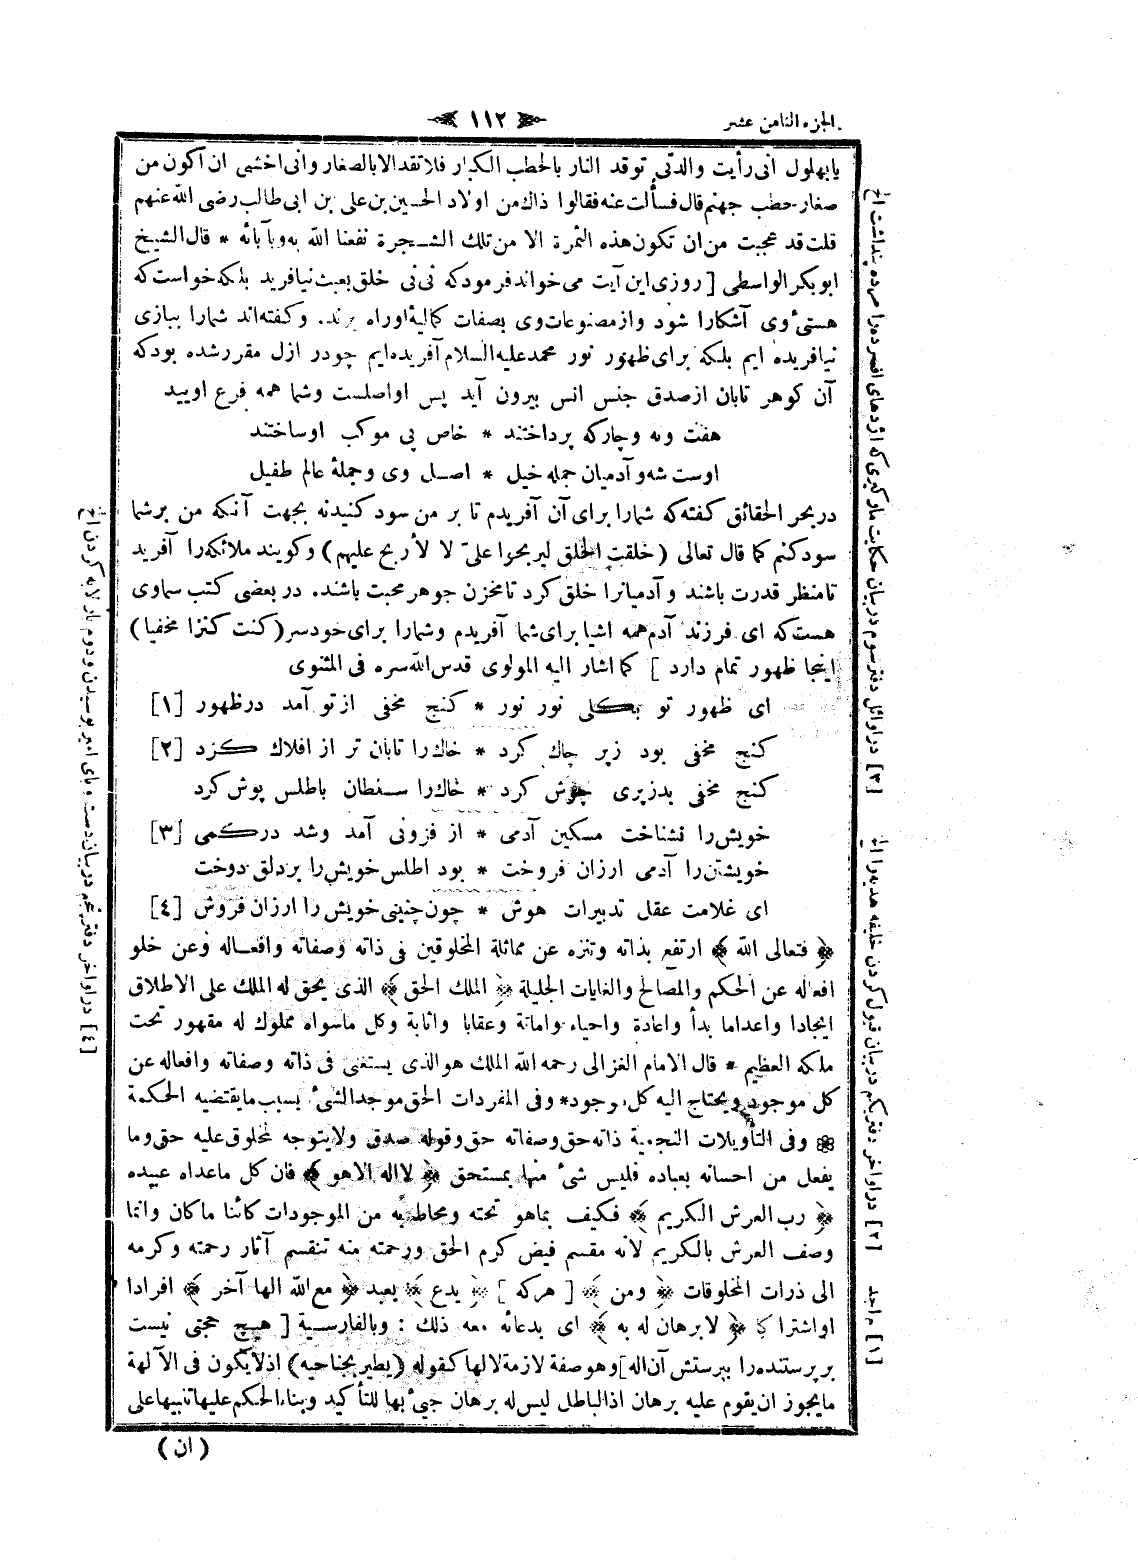 الجزء الثامن عشر
١١٢
يابهلول انى رأيت والدتى توقد النار بالحطب الكبار فلا تقد الا بالصغار وانى اخشى ان اكون من
صغار حطب جهنم قال فسألت عنه فقالوا ذاك من اولاد الحسين بن على بن ابى طالب رضى الله عنهم
قلت قد عجبت من ان تكون هذه الثمرة الا من تلك الشجرة نفعنا الله به وبآبائه * قال الشيخ
ابو بكر الواسطى [ روزى اين آيت مى خواند فرمود كه نى نى خلق بعبث نيافريد بلكه خواست كه
هستىء وى آشكارا شود واز مصنوعات وى بصفات كماليۀ او راه برند. وكفته اند شمارا ببازى
نيافريده ايم بلكه براى ظهور نور محمد عليه السلام آفريده ايم چو در ازل مقرر شده بود كه
آن كوهر تابان از صدق جنس انس بيرون آيد پس او اصلست وشما همه فرع اوييد
هفت ونه وچار كه پرداختند * خاص پى موكب او ساختند
اوست شه و آدميان جمله خيل * اصل وى وجملۀ عالم طفيل
در بحر الحقائق كفته كه شمارا براى آن آفريدم تا بر من سود كنيد نه بجهت آنكه من بر شما
سود كنم كما قال تعالى ( خلقت الخلق ليربحوا علىّ لا لأربح عليهم ) وكويند ملائكه را آفريد
تا منظر قدرت باشند و آدميانرا خلق كرد تا مخزن جوهر محبت باشند. در بعضى كتب سماوى
هست كه اى فرزند آدم همه اشيا براى شما آفريدم وشمارا براى خود سر ( كنت كنزا مخفيا )
اينجا ظهور تمام دارد ] كما اشار اليه المولوى قدس الله سره فى المثنوى
اى ظهور تو بكلى نور نور * كنج مخفى از تو آمد در ظهور [١]
كنج مخفى بود زپر چاك كرد * خاك را تابان تر از افلاك كرد [٢]
كنج مخفى بدزپرى جوش كرد * خاك را سلطان با طلس پوش كرد
خويش را نشناخت مسكين آدمى * از فزونى آمد وشد در كمى [٣]
خويشتن را آدمى ارزان فروخت * بود اطلس خويش را بر دلق دوخت
اى غلامت عقل تدبيرات هوش * چون چنينى خويش را ارزان فروش [٤]
﴿ فتعالى الله ﴾ ارتفع بذاته وتنزه عن مماثلة المخلوقين فى ذاته وصفاته وافعاله وعن خلو
افعاله عن الحكم والمصالح والغايات الجليلة ﴿ الملك الحق ﴾ الذى يحق له الملك على الاطلاق
ايجادا واعداما بدأ واعادة واحياء واماتة وعقابا واثابة وكل ما سواه مملوك له مقهور تحت
ملكه العظيم * قال الامام الغزالى رحمه الله الملك هو الذى يستغنى فى ذاته وصفاته وافعاله عن
كل موجود ويحتاج اليه كل موجود * وفى المفردات الحق موجد الشئ بسبب ما يقتضيه الحكمة
❁ وفى التأويلات النجمية ذاته حق وصفاته حق وقوله صدق ولا يتوجه لمخلوق عليه حق وما
يفعل من احسانه بعباده فليس شئ منها بمستحق ﴿ لا اله الا هو ﴾ فان كل ما عداه عبيده
﴿ رب العرش الكريم ﴾ فكيف بما هو تحته ومحاط به من الموجودات كائنا ما كان وانما
وصف العرش بالكريم لانه مقسم فيض كرم الحق ورحمته منه تنقسم آثار رحمته وكرمه
الى ذرات المخلوقات ﴿ ومن ﴾ [ هركه ] ﴿ يدع ﴾ يعبد ﴿ مع الله الها آخر ﴾ افرادا
او اشتراكا ﴿ لا برهان له به ﴾ اى بدعائه معه ذلك : وبالفارسية [ هيچ حجتى نيست
بر پرستنده را ببرستش آن اله ] وهو صفة لازمة لالها كقوله ( يطير بجناحيه ) اذ لا يكون فى الآلهة
ما يجوز ان يقوم عليه برهان اذ الباطل ليس له برهان جيئ بها للتأكيد وبناء الحكم عليها تنبيها على
( ان )
[١] لم اجد
[٢] در اواخر دفتر يكم در بيان قبول كردن خليفه هديه را الخ
[٣] در اوائل دفتر سوم در بيان حكايت ماركيرى كه اژدهاى افسرده را مرده پنداشت الخ
[٤] در اواخر دفتر پنجم در بيان دست و پاى امير بوسيدن ودوم بار لابه كردن الخ